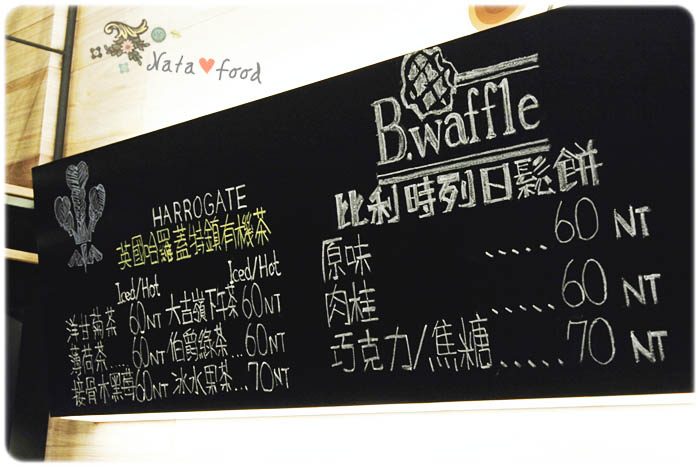 Nata food
HARROGATE
英國哈羅蓋特鎮有機茶
Iced/Hot Iced/Hot
洋甘菊茶 60NT 大吉嶺下午茶 60NT
薄荷茶......60NT 伯爵綠茶...60NT
接骨木黑莓60NT 冰水果茶...70NT
B.waffle
比利時列日鬆餅
原味 .....60 NT
肉桂 .....60 NT
巧克力/焦糖.....70 NT